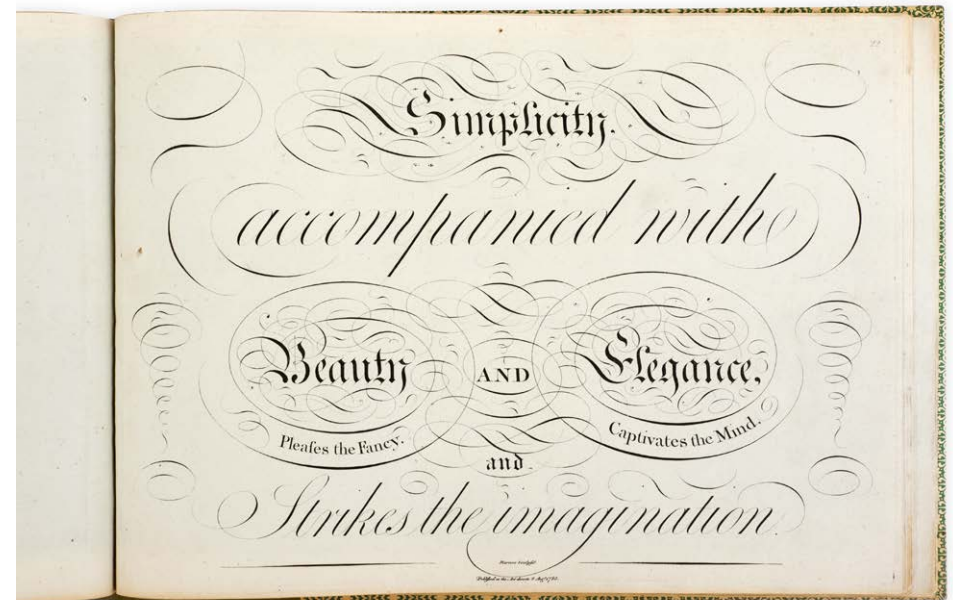 Simplicity.
accompanied with
Beauty AND Elegance,
Pleaſes the Fancy. Captivates the Mind.
and
Strikes the imagination.